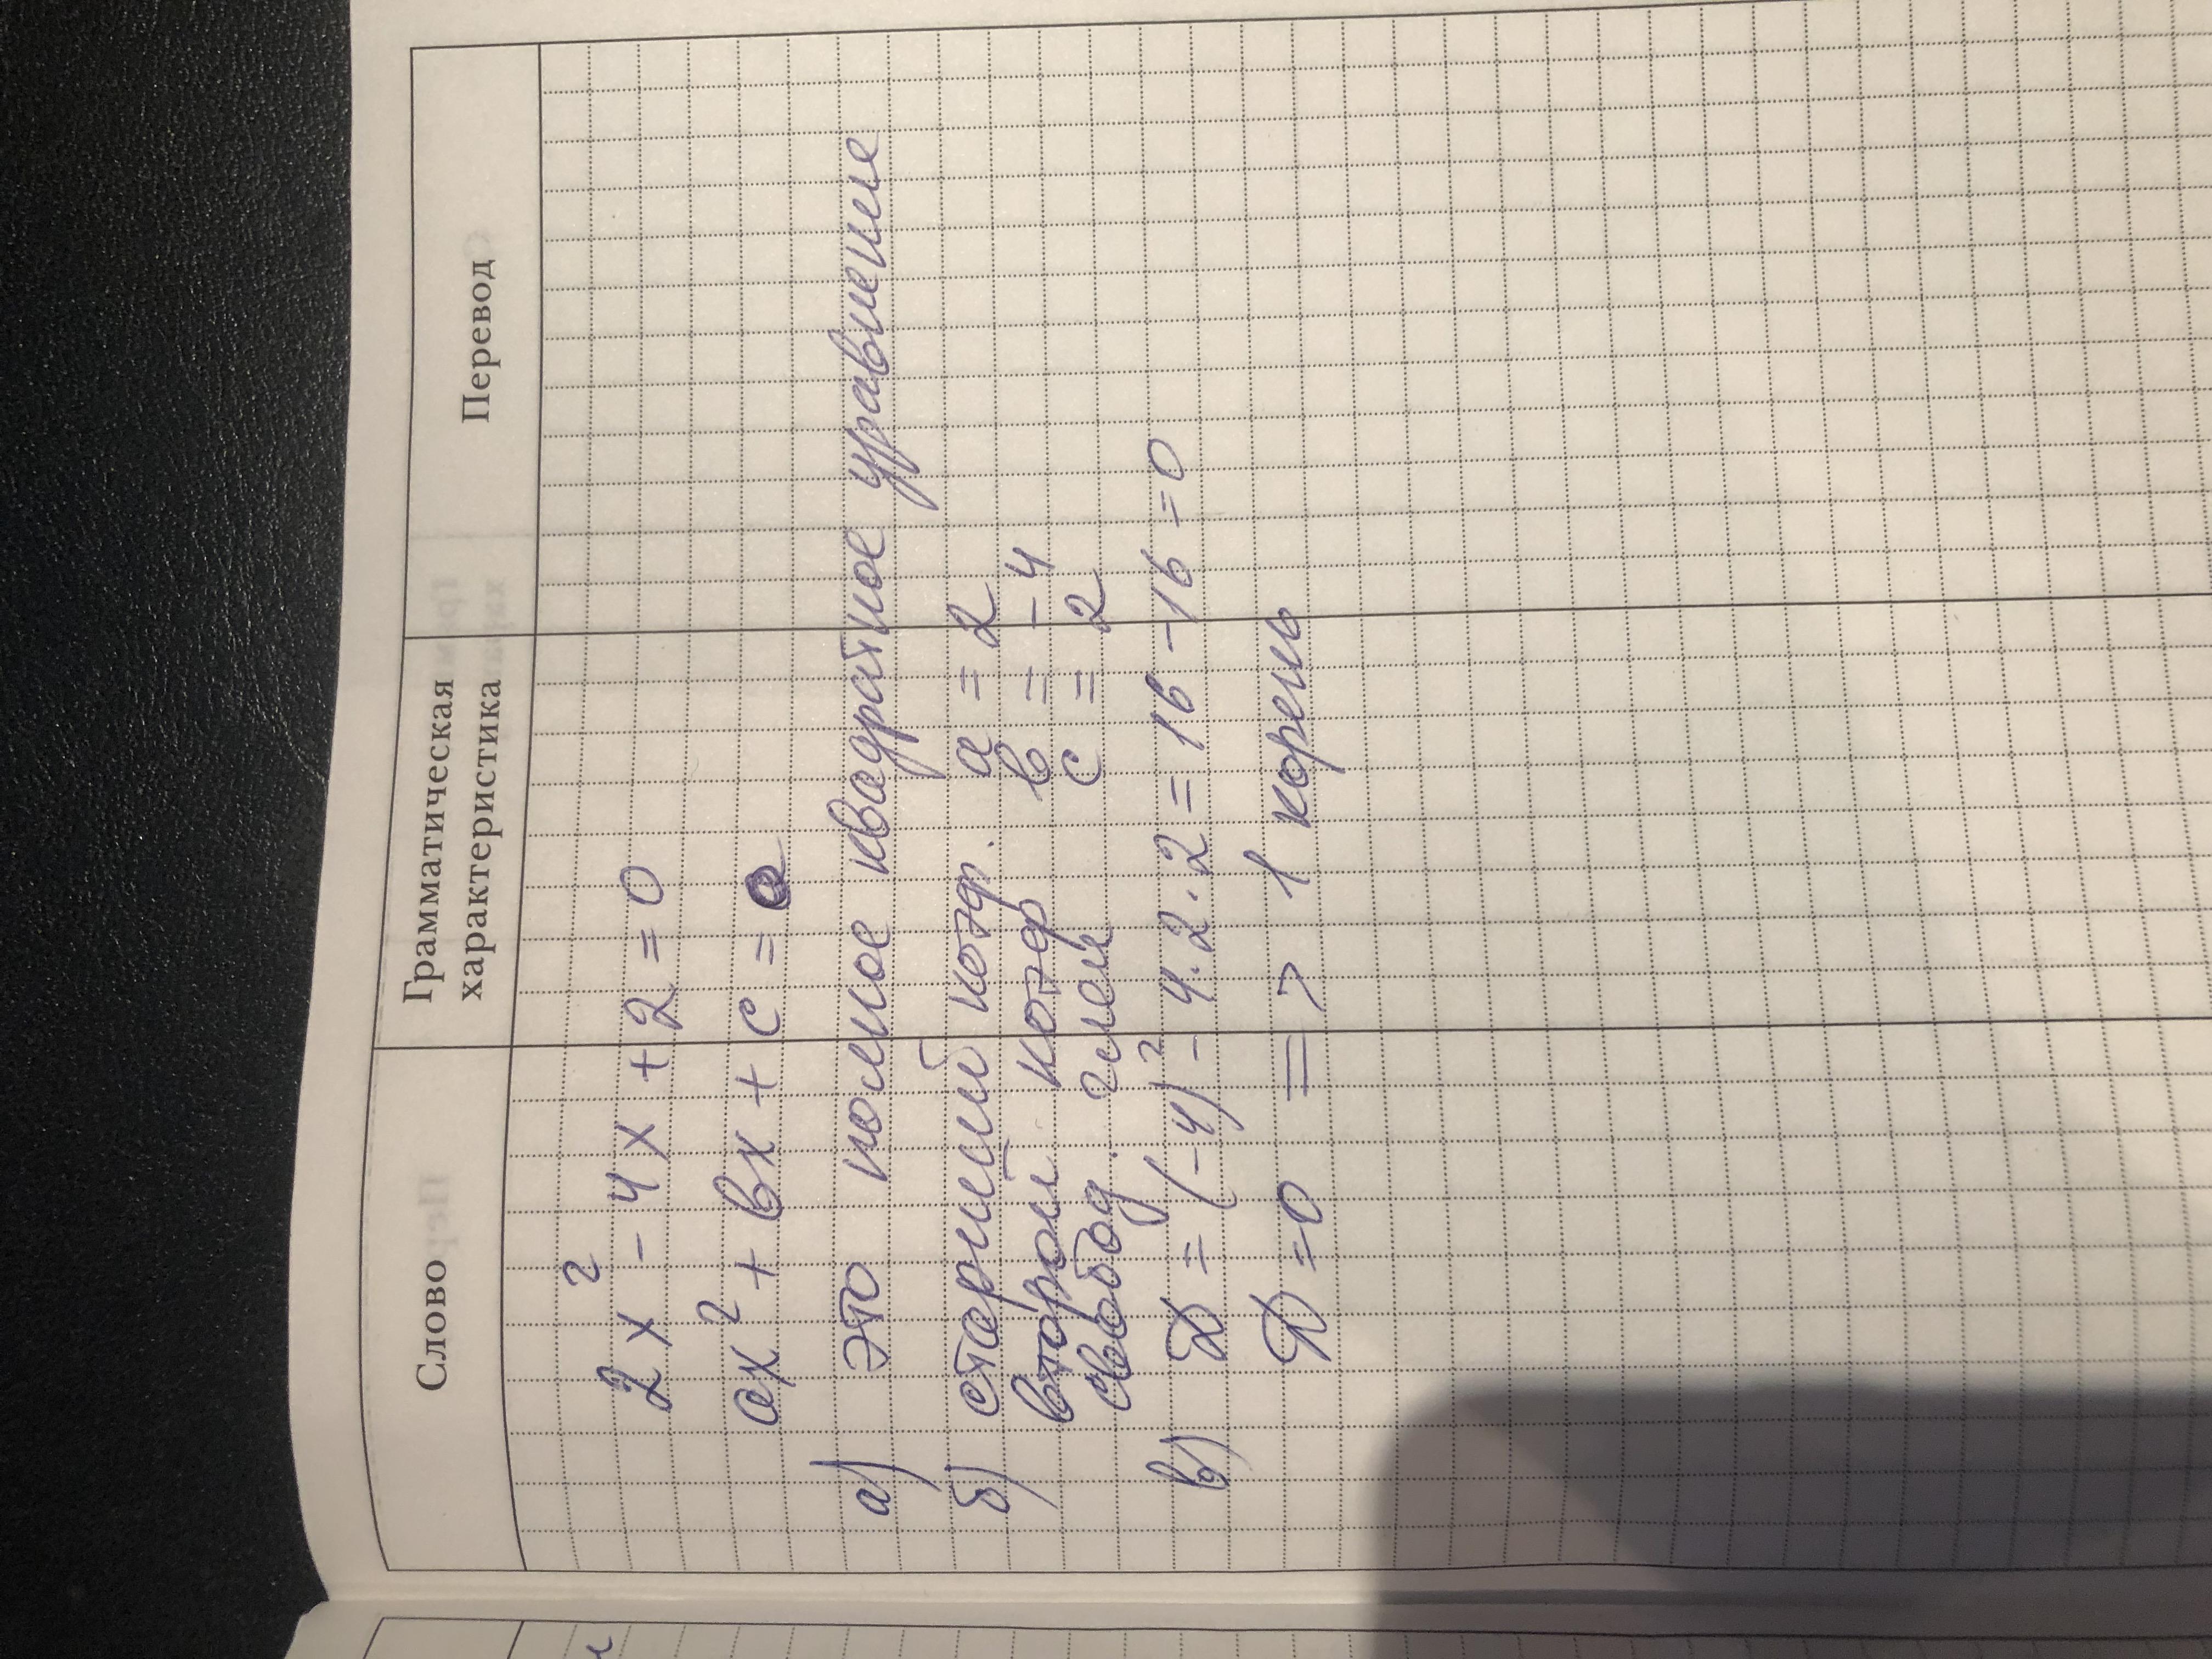 Слово Грамматическая характеристика Перевод
2x² - 4x + 2 = 0
ax² + bx + c = 0
а) это полное квадратное уравнение
б) старший коэф. a = 2
второй коэф b = -4
свобод. член c = 2
в) D = (-4)² - 4·2·2 = 16 - 16 = 0
D = 0 => 1 корень